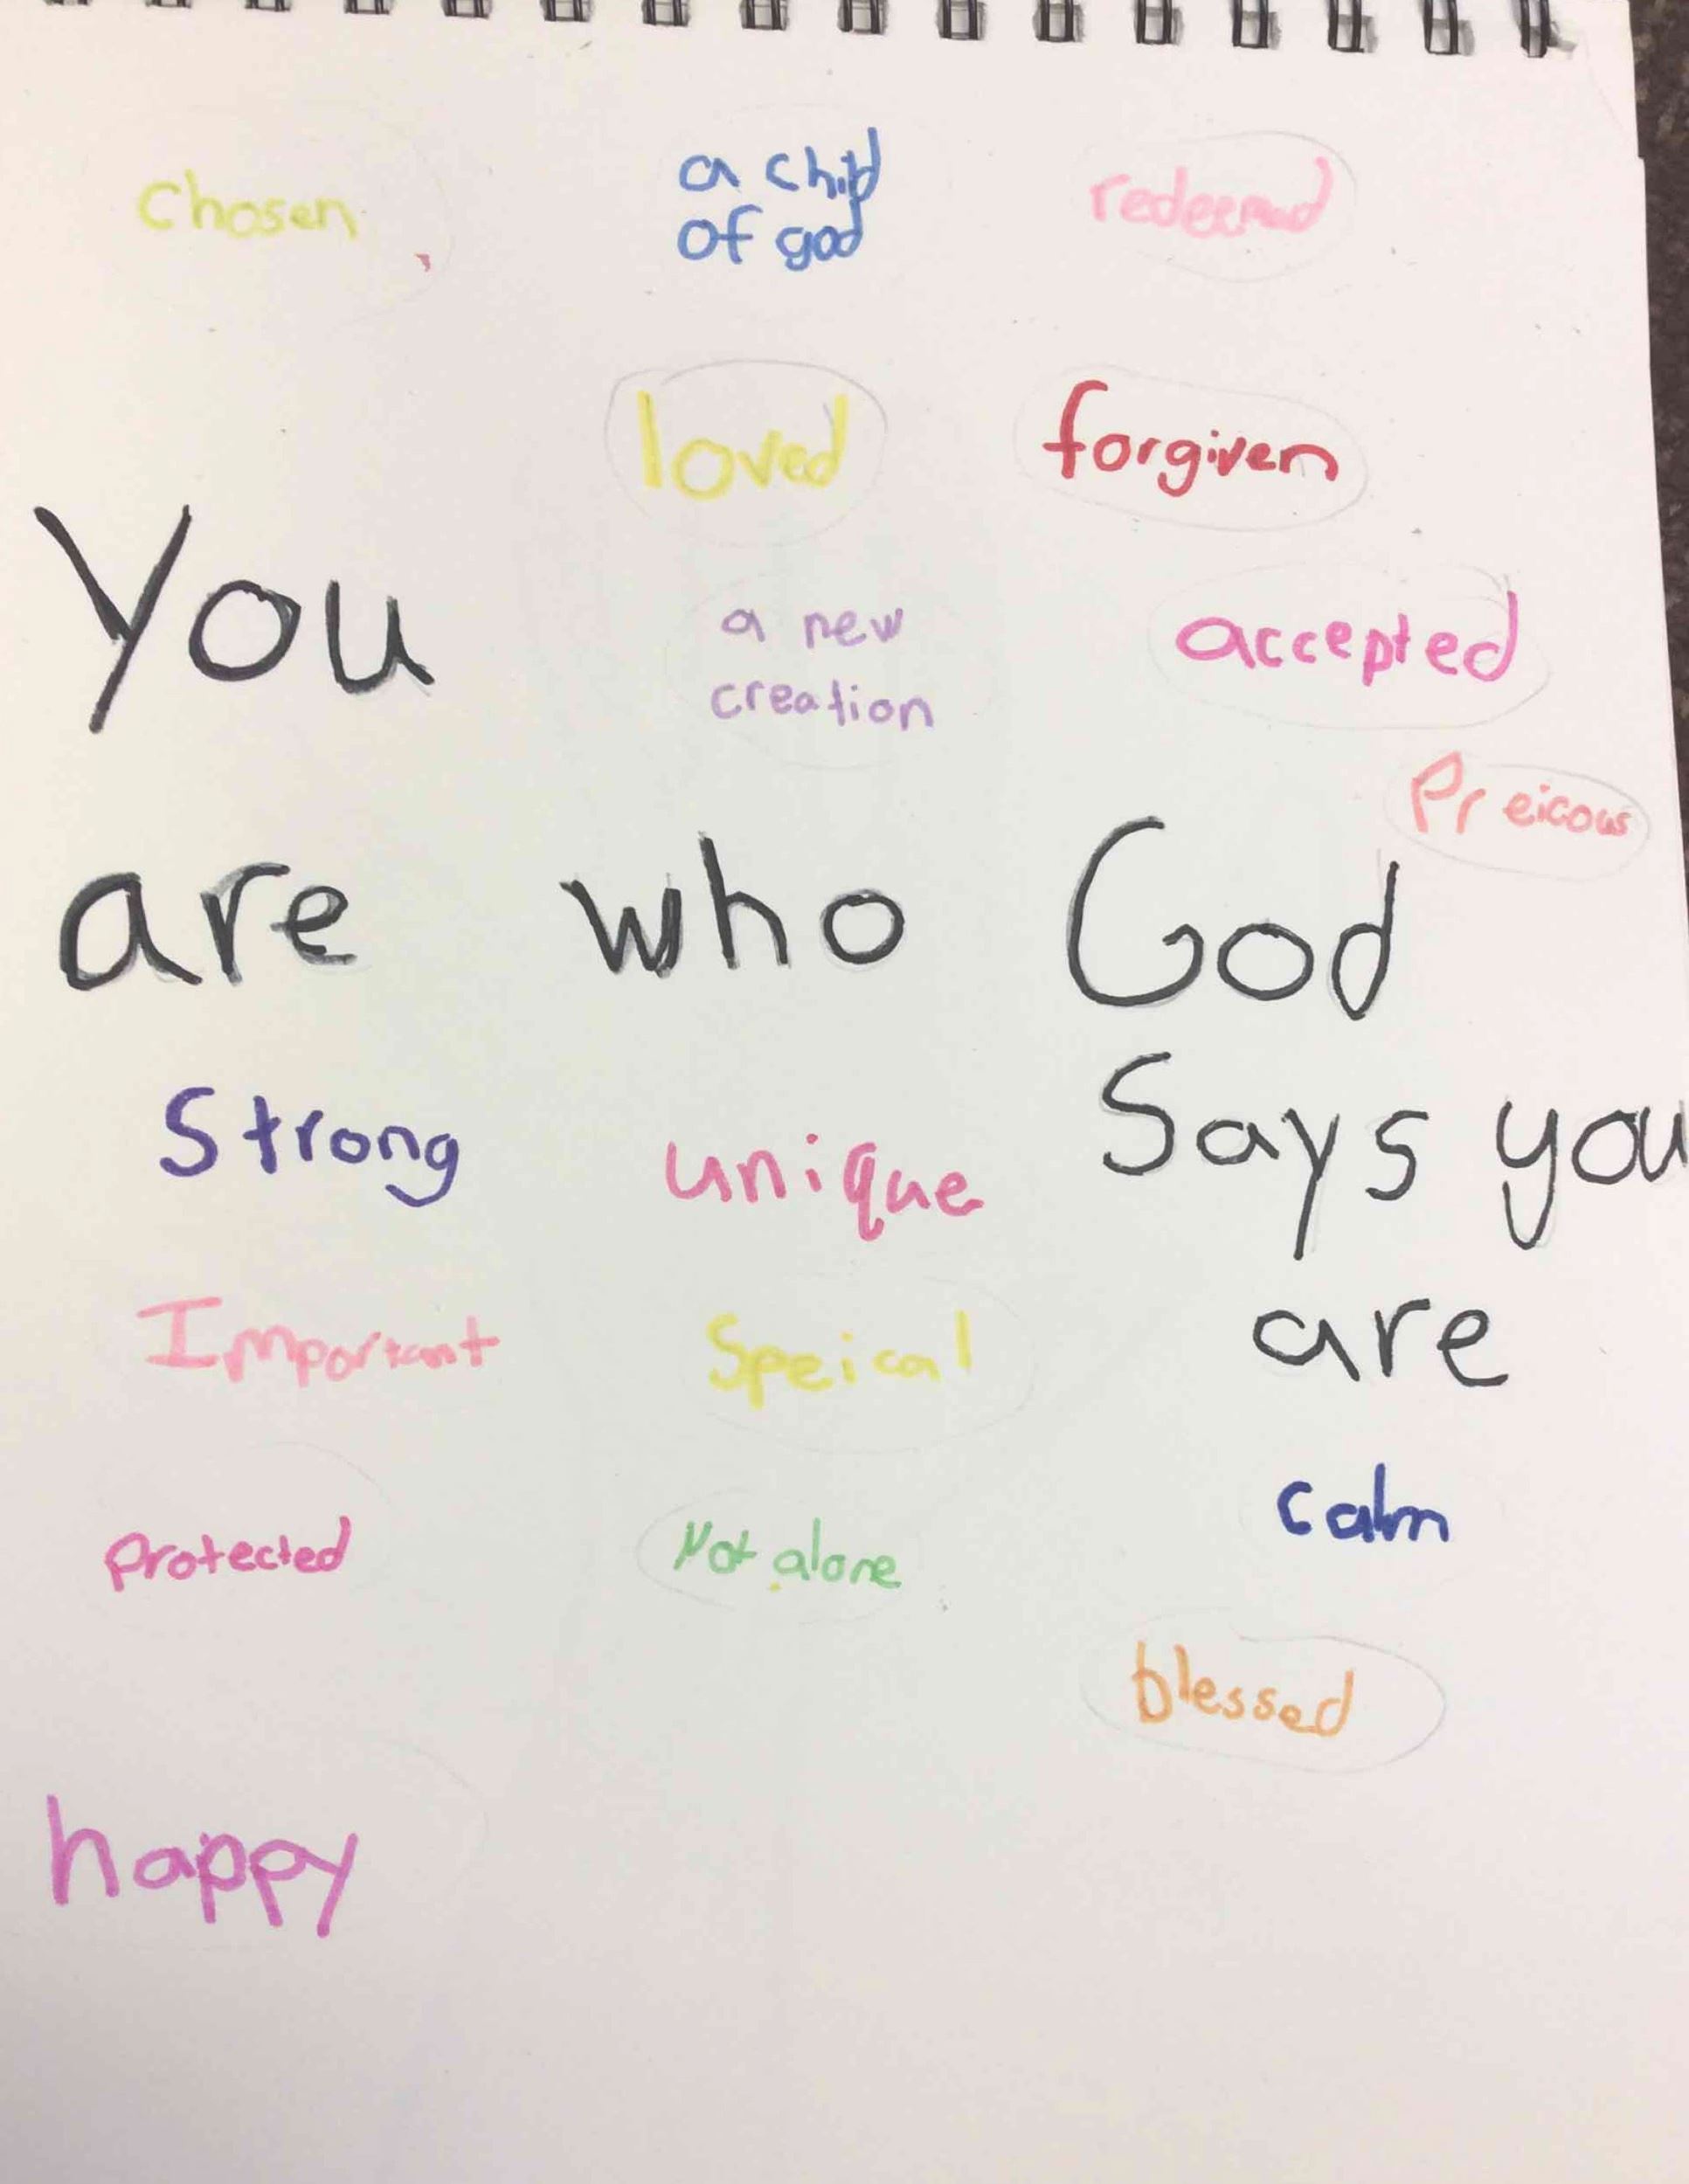 chosen
a child
of god
redeemed
loved
forgiven
You
a new
creation
accepted
Preicous
are who God
Strong
unique
Says you
Important
Speical
are
Protected
Not alone
calm
blessed
happy